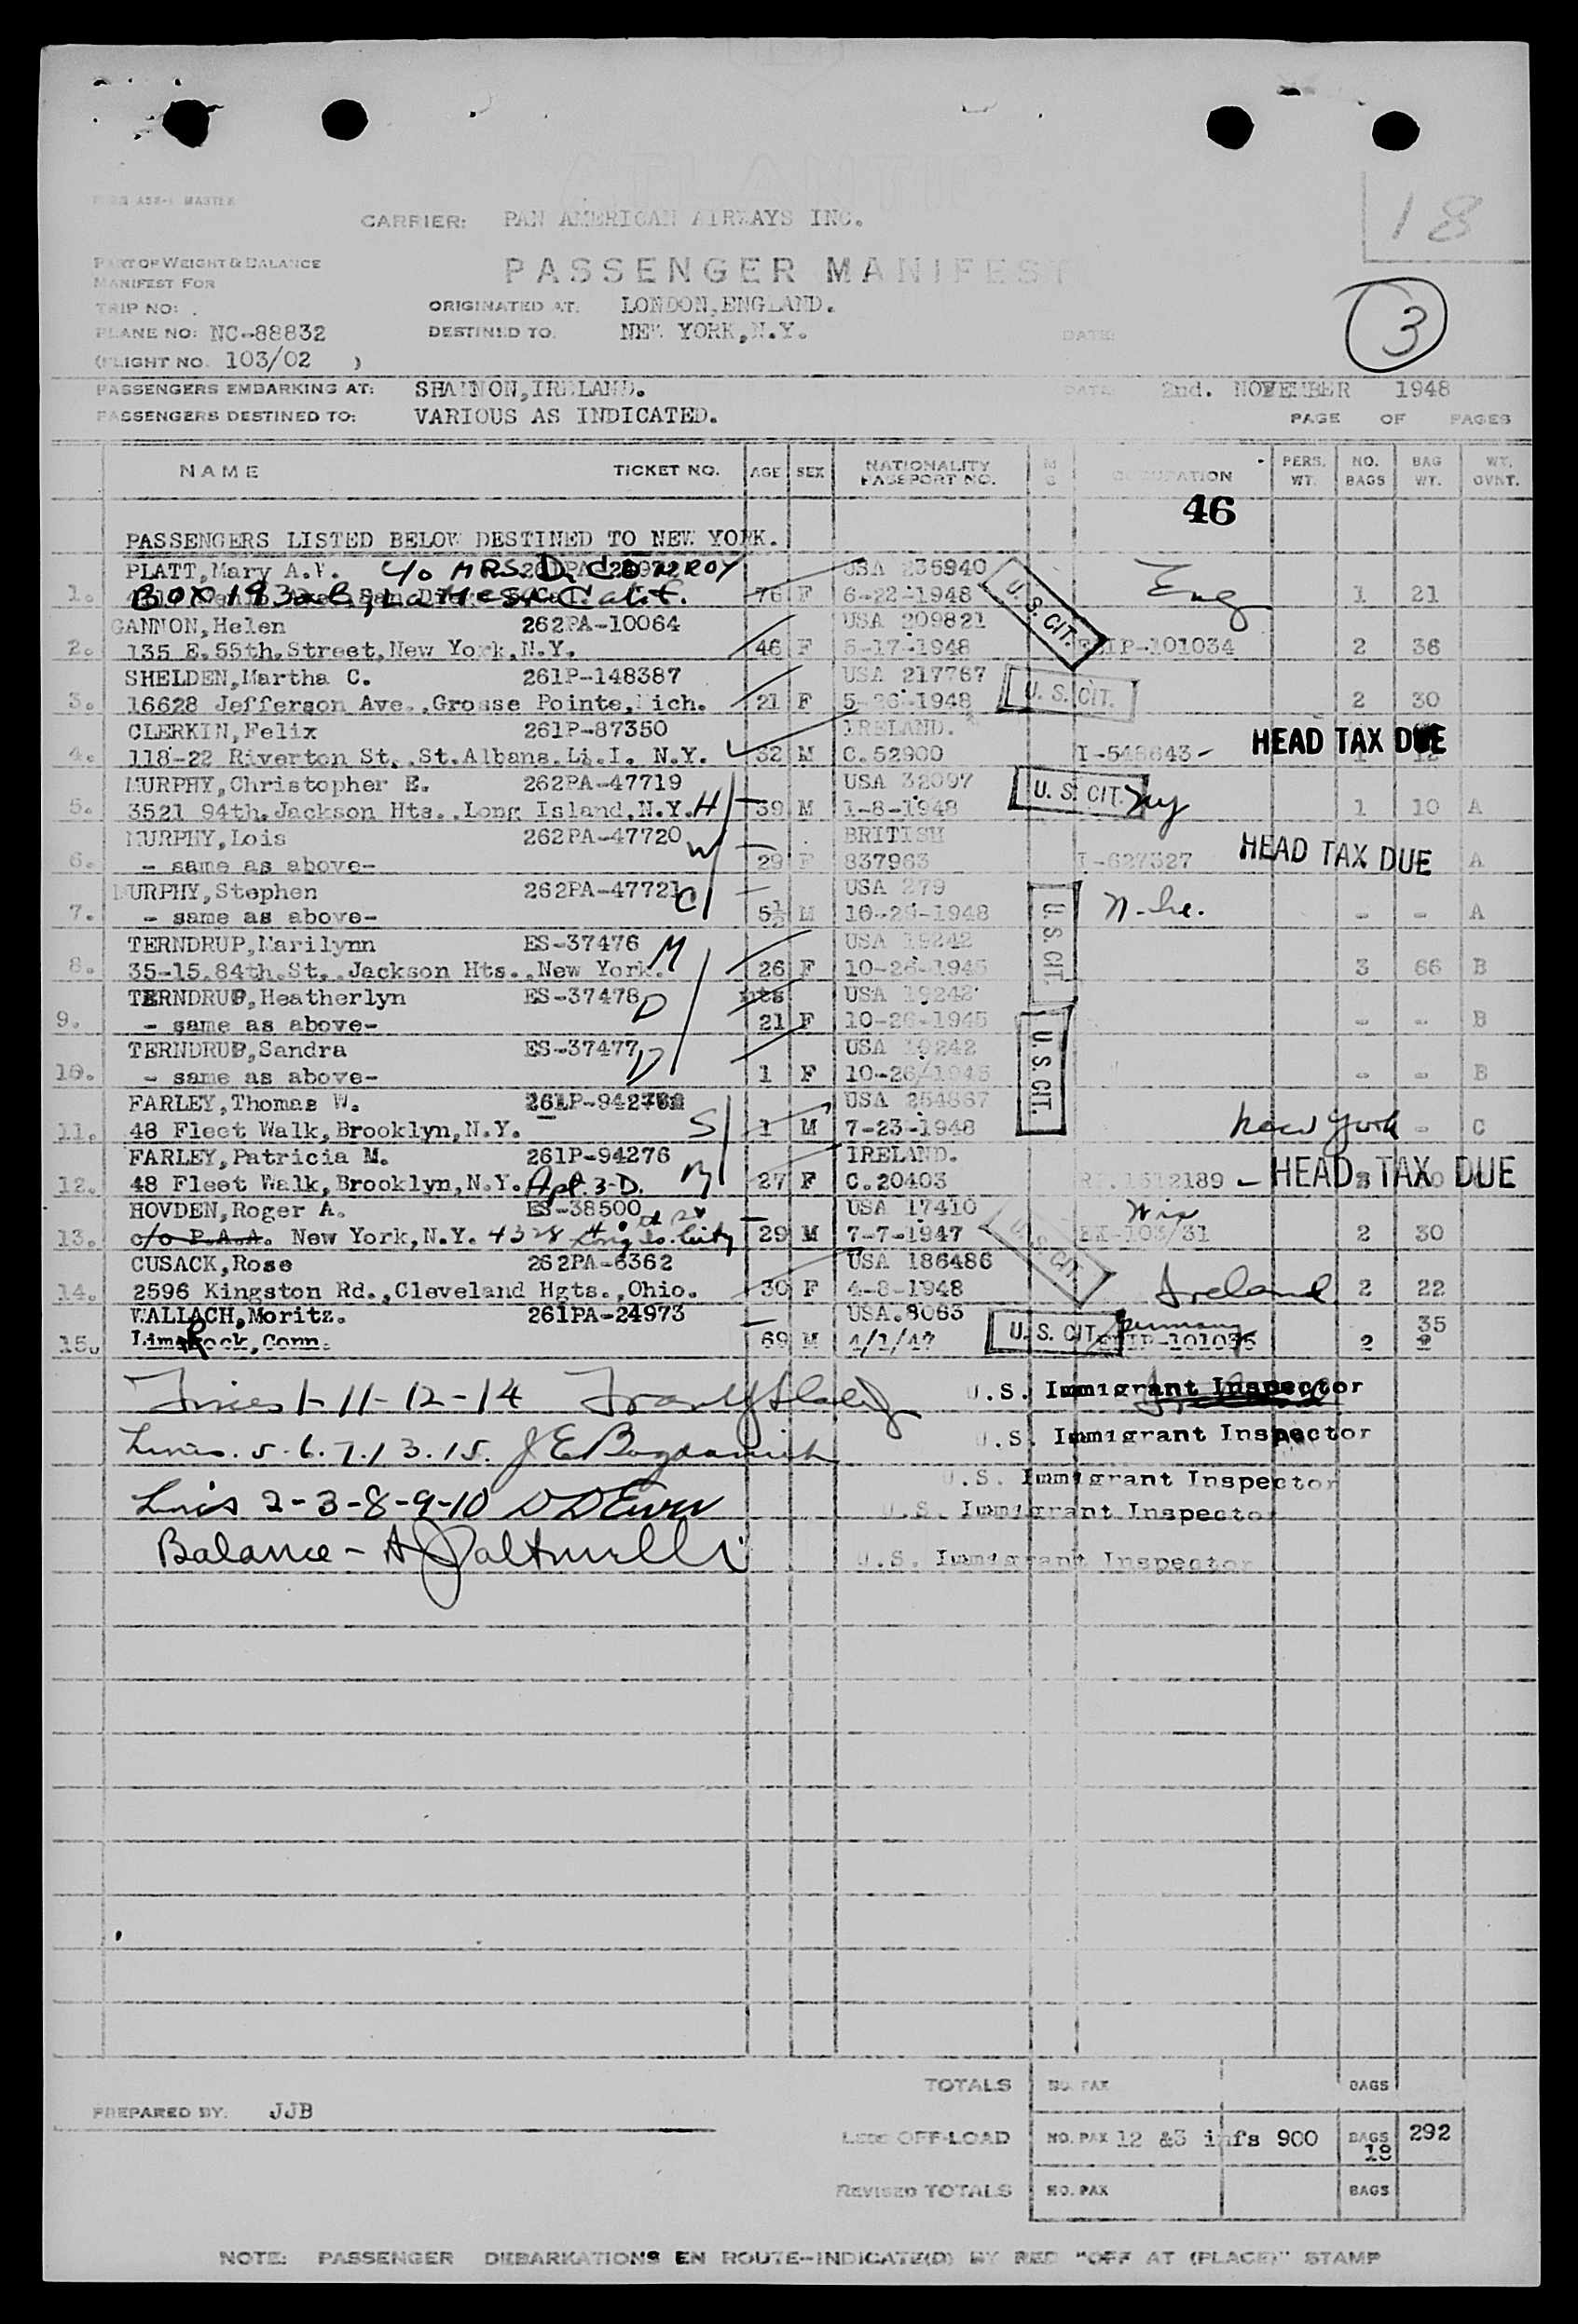 18
FORM ASX-1 MASTER
CARRIER: PAN AMERICAN AIRWAYS INC.
PART OF WEIGHT & BALANCE
MANIFEST FOR
PASSENGER MANIFEST
TRIP NO: .
ORIGINATED AT: LONDON,ENGLAND.
3
PLANE NO: NC-88832
DESTINED TO: NEW YORK,N.Y.
DATE:
(FLIGHT NO. 103/02 )
PASSENGERS EMBARKING AT: SHANNON,IRELAND.
DATE: 2nd. NOVEMBER 1948
PASSENGERS DESTINED TO: VARIOUS AS INDICATED.
PAGE OF PAGES
NAME TICKET NO. AGE SEX NATIONALITY PASSPORT NO. OCCUPATION PERS. WT. NO. BAGS BAG WT. WT. OVNT.
46
PASSENGERS LISTED BELOW DESTINED TO NEW YORK.
PLATT,Mary A.V. c/o MRS. D. CONROY USA 235940
1. BOX 193 La Mesa Calif. 76 F 6-22-1948 U.S. CIT. Eng 1 21
GANNON,Helen 262PA-10064 USA 209821
2. 135 E.55th.Street,New York,N.Y. 46 F 5-17-1948 101034 2 36
SHELDEN,Martha C. 261P-148387 USA 217767
3. 16628 Jefferson Ave.,Grosse Pointe,Mich. 21 F 5-26-1948 U.S. CIT. 2 30
CLERKIN,Felix 261P-87350 IRELAND.
4. 118-22 Riverton St,.St.Albans.L.I. N.Y. 32 M C.52900 I-548643- HEAD TAX DUE 1 12
MURPHY,Christopher E. 262PA-47719 USA 32097
5. 3521 94th.Jackson Hts.,Long Island,N.Y. H 39 M 1-8-1948 U.S. CIT. NY 1 10 A
MURPHY,Lois 262PA-47720 W BRITISH
6. - same as above- 29 F 837963 I-627327 HEAD TAX DUE A
MURPHY,Stephen 262PA-47721 C USA 279
7. - same as above- 5½ M 10-26-1948 U.S. CIT. N. Ire. - - A
TERNDRUP,Marilynn ES-37476 M USA 19242
8. 35-15.84th.St,.Jackson Hts.,New York. 26 F 10-26-1945 3 66 B
TERNDRUP,Heatherlyn ES-37478 D mts USA 19242
9. - same as above- 21 F 10-26-1945 U.S. CIT. - - B
TERNDRUP,Sandra ES-37477 D USA 19242
10. - same as above- 1 F 10-26/1945 - - B
FARLEY,Thomas W. USA 254867
11. 48 Fleet Walk,Brooklyn,N.Y. S 1 M 7-23-1948 New York - C
FARLEY,Patricia M. 261P-94276 IRELAND.
12. 48 Fleet Walk,Brooklyn,N.Y. Apt. 3-D. M 27 F C.20403 1612189 - HEAD TAX DUE
HOVDEN,Roger A. ES-38500 USA 17410
13. c/o P.A.A. New York,N.Y. 4328 Long Is. City 29 M 7-7-1947 U.S. CIT. Wis EX-103/31 2 30
CUSACK,Rose 262PA-6362 USA 186486
14. 2596 Kingston Rd.,Cleveland Hgts.,Ohio. 30 F 4-8-1948 Ireland 2 22
WALLACH,Moritz. 261PA-24973 USA.8063 Germany 35
15. Lime Rock,Conn. 69 M 4/1/47 U.S. CIT. 2
Lines 1-11-12-14 U.S. Immigrant Inspector
Lines. 5.6.7.13.15. J E Bogdanich U.S. Immigrant Inspector
U.S. Immigrant Inspector
Lines 2-3-8-9-10 U.S. Immigrant Inspector
Balance - U.S. Immigrant Inspector
TOTALS NO. PAX BAGS
PREPARED BY. JJB
LESS OFF-LOAD NO. PAX 12 &3 infs 900 BAGS 18 292
REVISED TOTALS NO. PAX BAGS
NOTE: PASSENGER DEBARKATIONS EN ROUTE--INDICATE(D) BY RED "OFF AT (PLACE)" STAMP